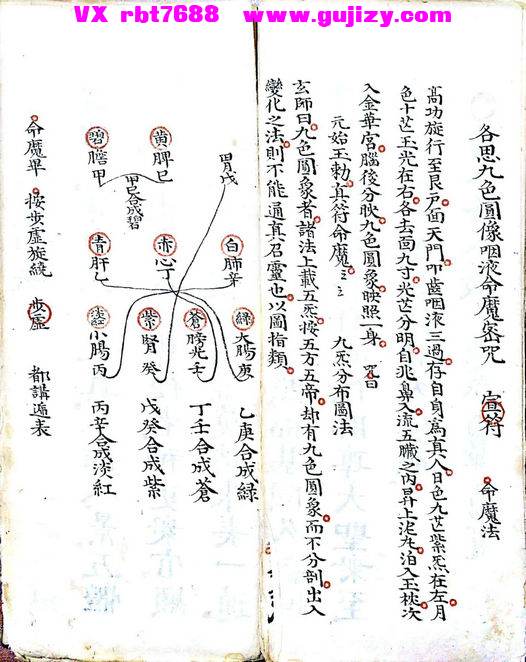 VX rbt7688 www.gujizy.com
各思九色圓像咽液命魔密咒 宣符 命魔法
高功旋行至艮户面天門叩齒咽液三過存自身為真人日色九芒紫炁在左月
色十芒玉光在右各去面九寸光芒分明自兆鼻入流五臟之内昇上泥丸泊入玉枕次
入金華宮腦後分映九色圓象映照一身 咒曰
元始玉勅真符命魔三三 九炁分布圖法
玄師曰九色圓象者諸法上載五炁按五方五帝却有九色圓象而不分剖出入
變化之法則不能通真召靈也以圖指類
胃戊
黄脾己
甲己合成碧
碧膽甲
白肺辛
赤心丁
青肝乙
緑大腸庚
蒼膀光壬
紫腎癸
小腸丙
乙庚合成緑
丁壬合成蒼
戊癸合成紫
丙辛合成淡紅
命魔畢 按步虚旋繞 步虚 都講遁表